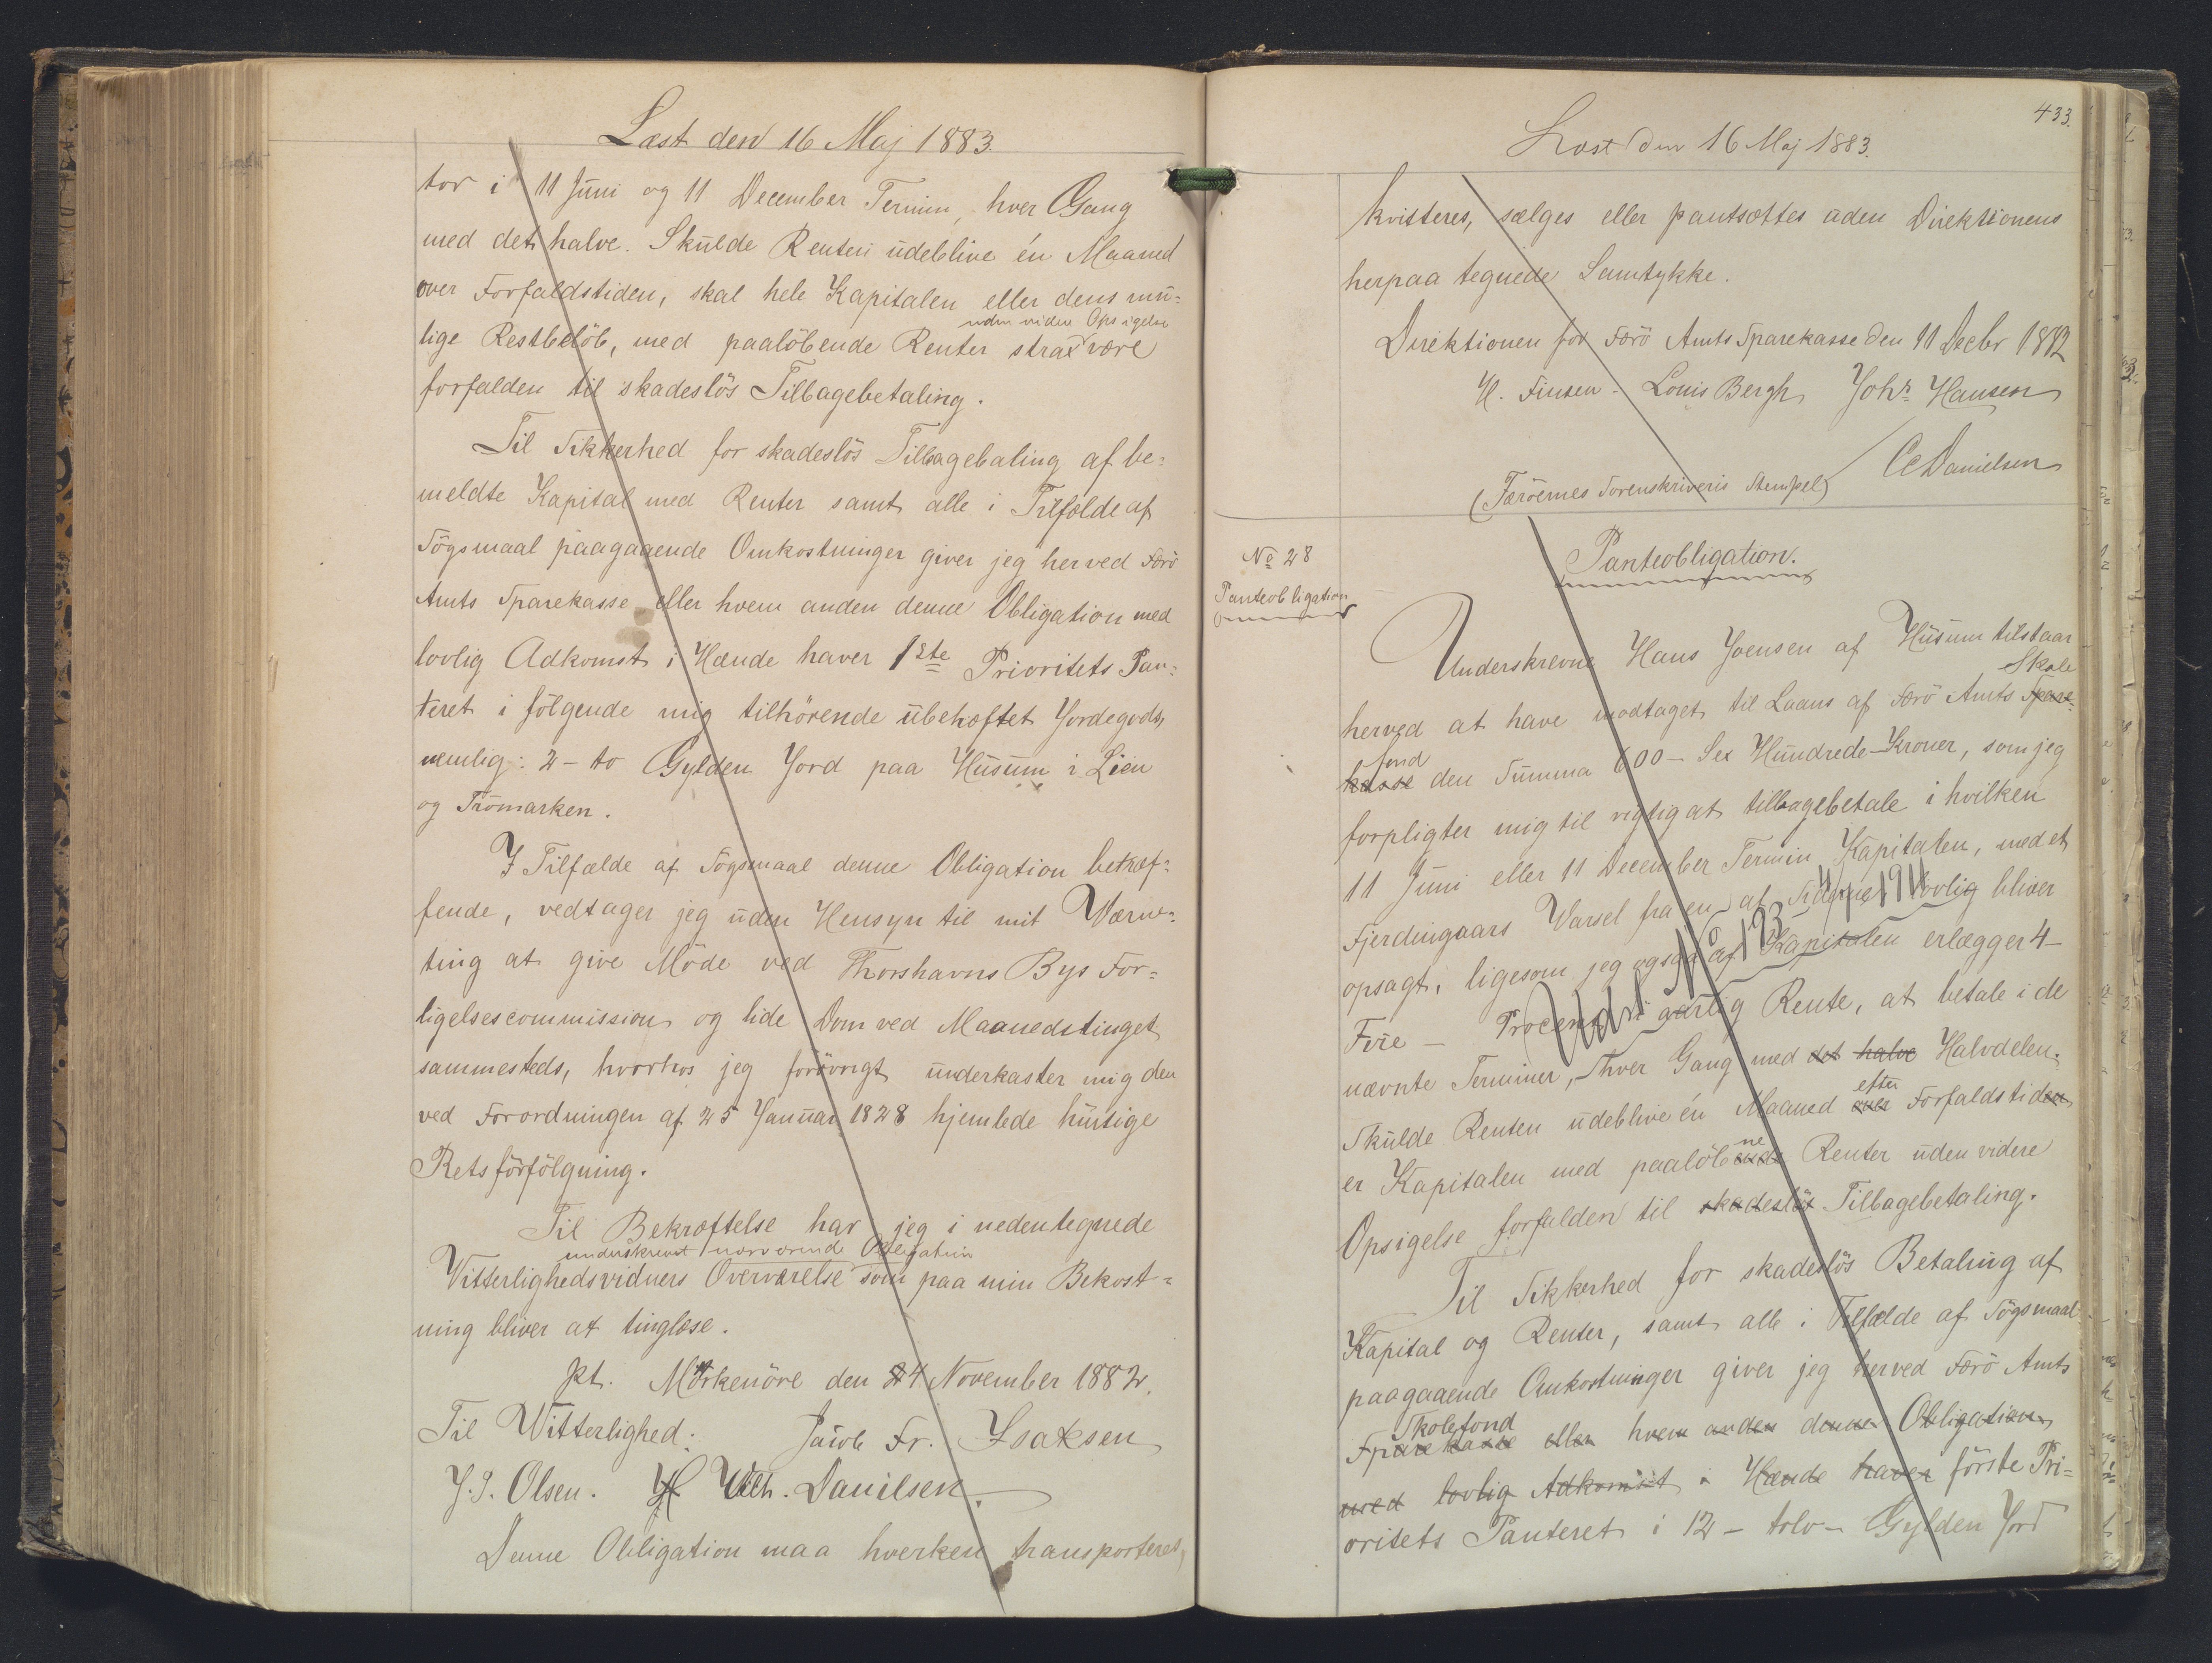 Læst den 16 Maj 1883.
tor i 11 Juni og 11 December Termin, hver Gang
med det halve. Skulde Renten udeblive én Maaned
over Forfaldstiden, skal hele Kapitalen eller dens mu-
uden videre Opsigelse
lige Restbelöb, med paalöbende Renter strax være
forfalden til skadeslös Tilbagebetaling.
Til Sikkerhed for skadeslös Tilbagebaling af be-
meldte Kapital med Renter samt alle i Tilfælde af
Sögsmaal paagaaende Omkostninger giver jeg herved Færö
Amts Sparekasse eller hvem anden denne Obligation med
lovlig Adkomst i Hænde haver 1ste Prioritets Pan-
teret i fölgende mig tilhörende ubehæftet Jordegods,
nemlig: 2 - to Gylden Jord paa Husum i Lien
og Trömarken.
I Tilfælde af Sögsmaal denne Obligation betræf-
fende, vedtager jeg uden Hensyn til mit Værne-
ting at give Möde ved Thorshavns Bys For-
ligelsescommission og lide Dom ved Maanedstinget
sammesteds, hvorhos jeg forövrigt underkaster mig den
ved Forordningen af 25 Januar 1828 hjemlede hurtige
Retsforfölgning.
Til Bekræftelse har jeg i nedentegnede
underskrevet nærværende Obligation
Vitterlighedsvidners Overværelse som paa min Bekost-
ning bliver at tinglæse.
pt. Mörkenöre den 24 November 1882.
Til Vitterlighed: Jacob Fr. Isaksen
J. J. Olsen. H Vilh. Danilsen.
Denne Obligation maa hverken transporteres,
433.
Læst den 16 Maj 1883.
kvitteres, sælges eller pantsættes uden Direktionens
herpaa tegnede Samtykke.
Direktionen for Færö Amts Sparekasse den 11 Decbr 1882
H. Finsen - Louis Bergh Johs Hansen
CC Danielsen
(Færöernes Sorenskriveris Stempel)
No 28
Panteobligation
Panteobligation.
Underskrevne Hans Joensen af Husum tilstaar
Skole
herved at have modtaget til Laans af Færö Amts Spare-
fond
kasse den Summa 600 - Sex Hundrede - Kroner, som jeg
forpligter mig til rigtig at tilbagebetale i hvilken
11 Juni eller 11 December Termin Kapitalen, med et
Fjerdingaars Varsel fra en af Siderne lovlig bliver
opsagt, ligesom jeg ogsaa af Kapitalen erlægger 4 -
Fire - Procent aarlig Rente, at betale i de
nævnte Terminer, hver Gang med det halve Halvdelen.
efter
Skulde Renten udeblive én Maaned over Forfaldstiden
ne
er Kapitalen med paalöbende Renter uden videre
Opsigelse forfalden til skadeslös Tilbagebetaling.
Til Sikkerhed for skadeslös Betaling af
Kapital og Renter, samt alle i Tilfælde af Sögsmaal
paagaaende Omkostninger giver jeg herved Færö Amts
Skolefond
Sparekasse eller hvem anden denne Obligation
med lovlig Adkomst i Hænde haver förste Pri-
oritets Panteret i 12 - tolv - Gylden Jord